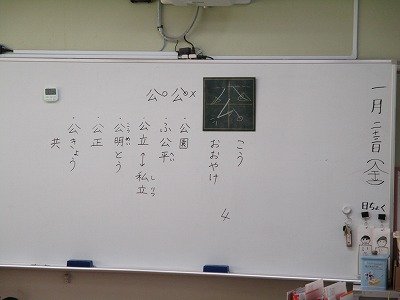 一月二十三日(金)
日ちょく
公
こう
おおやけ
4
公○ 公×
・公園
・ふ公平
・公立↔私立
・公明とう
・公正
・公きょう
共